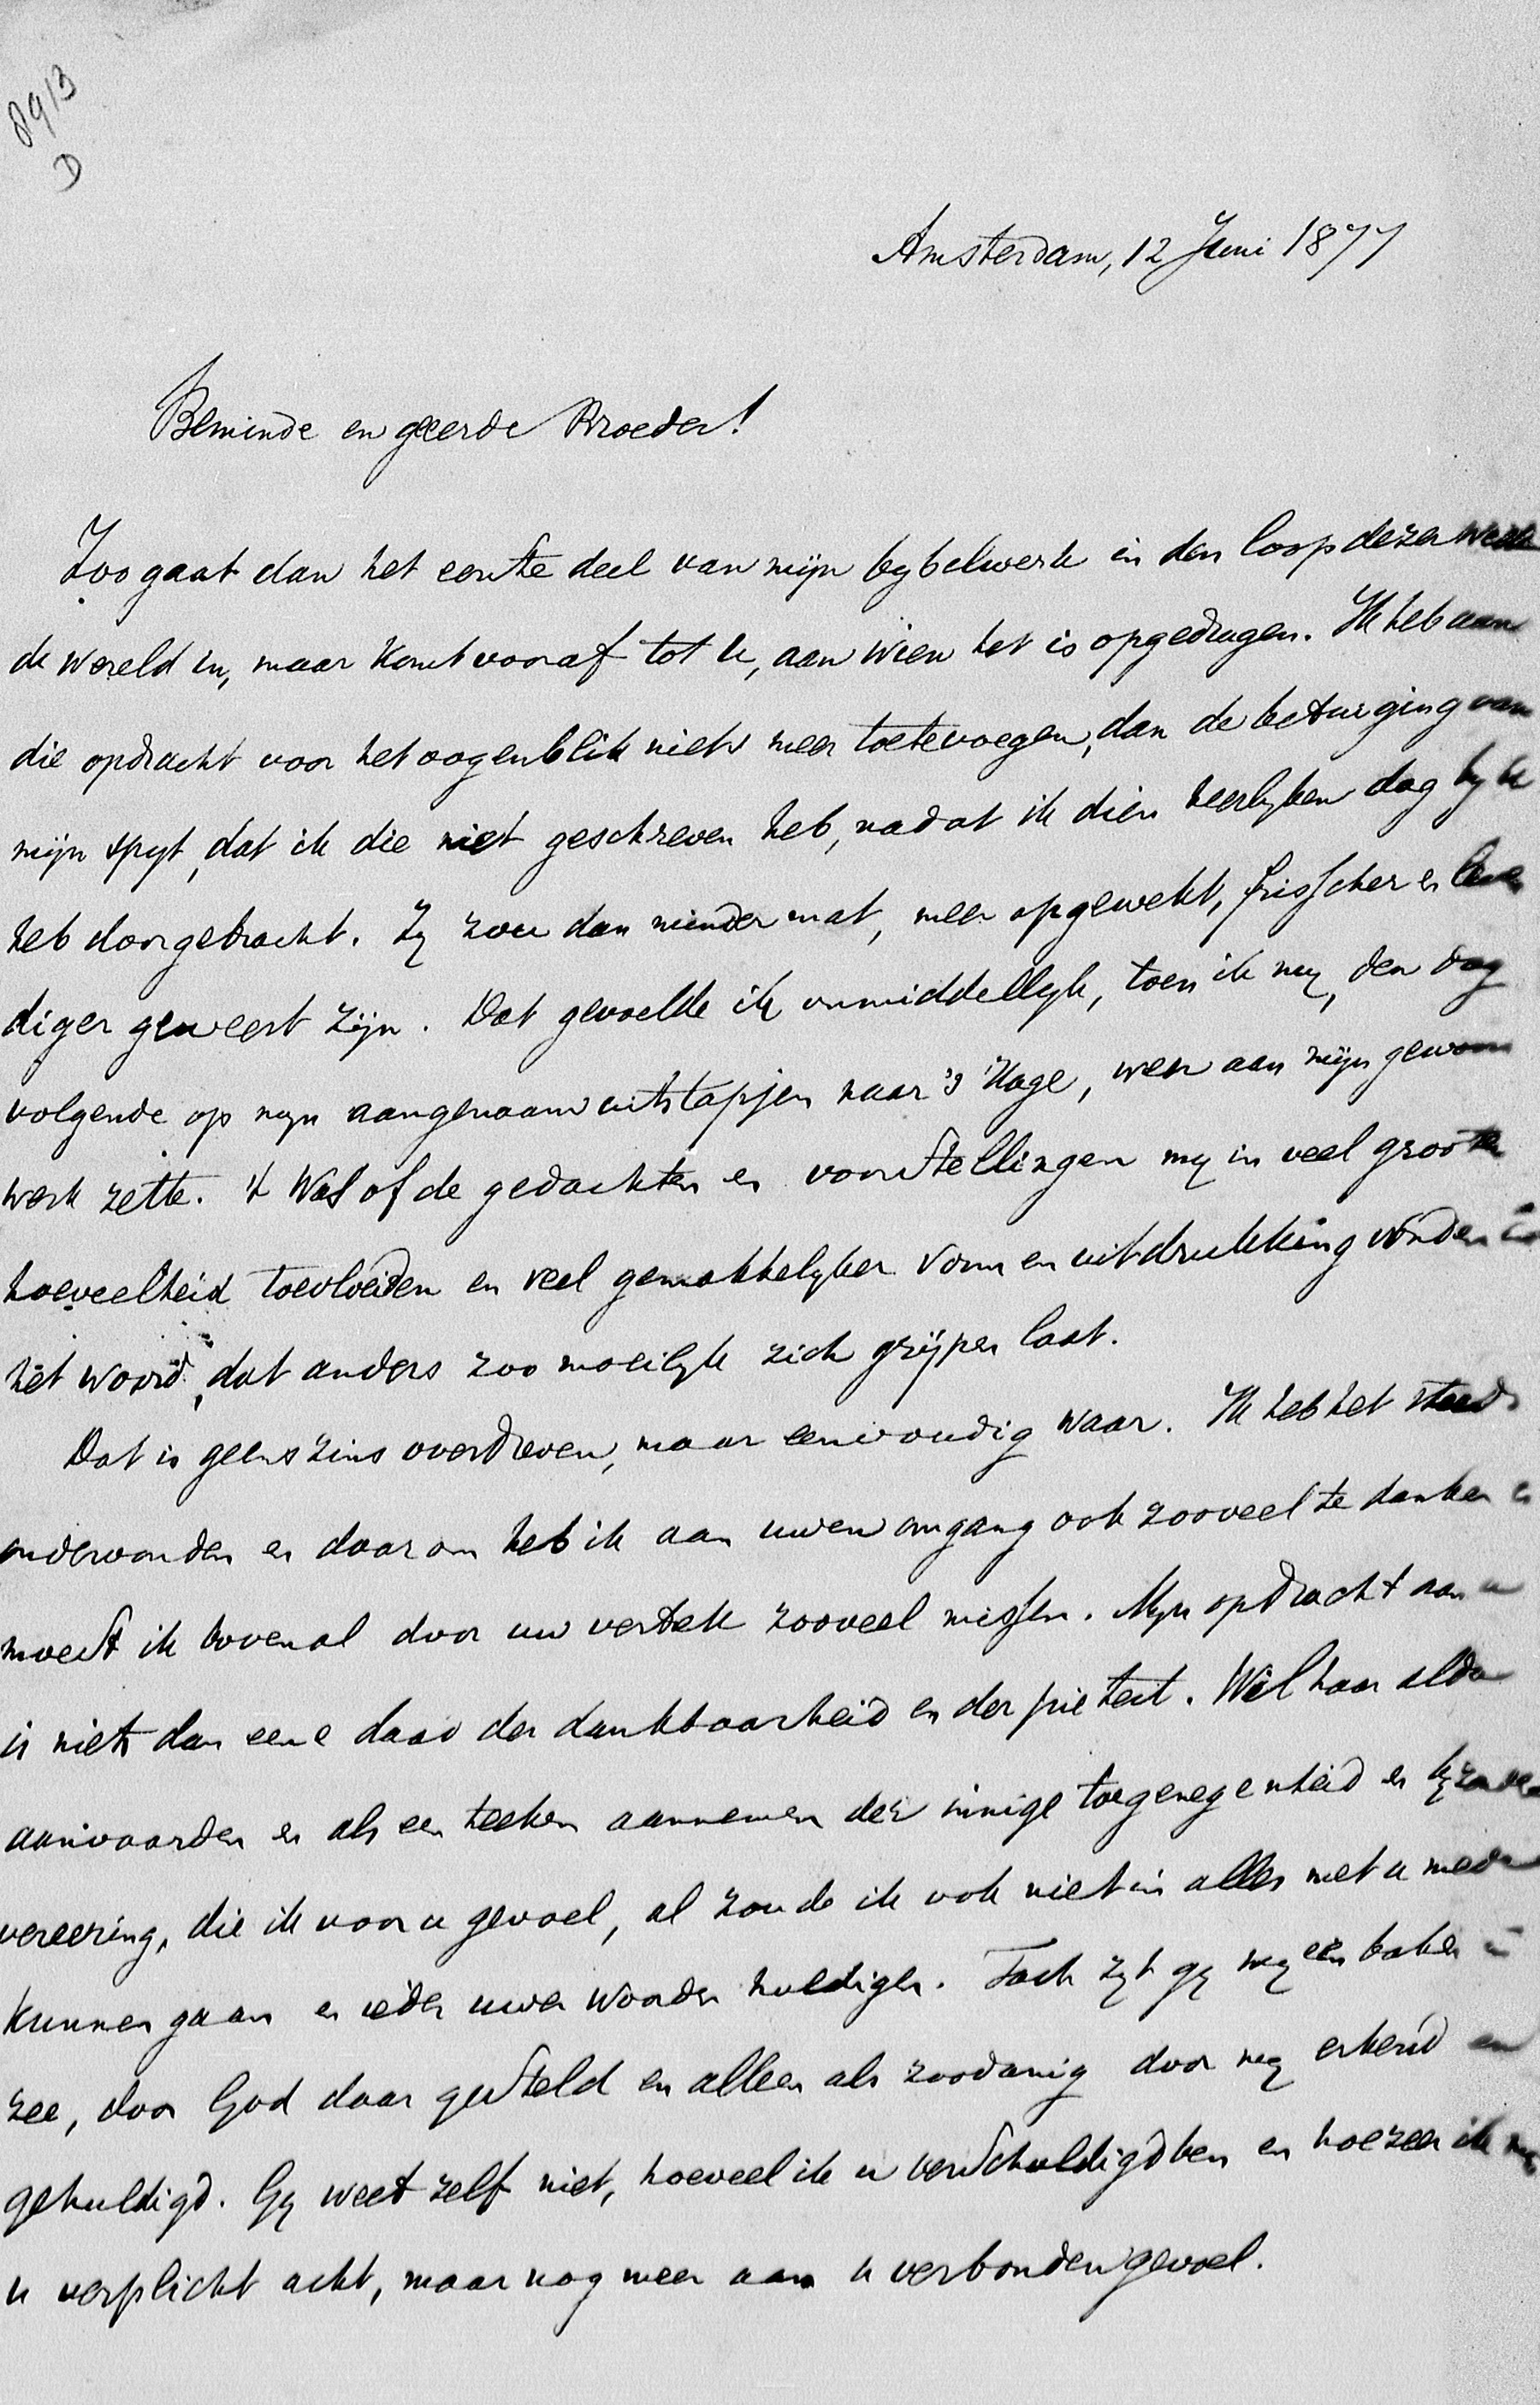 8913
D
Amsterdam, 12 Juni 1877
Beminde en geeerde Broeder!
Zoo gaat dan het eerste deel van mijn bybelwerk in den loop dezer week
de wereld in, maar komt vooraf tot u, aan wien het is opgedragen. Ik heb aan
die opdracht voor het oogenblik niets meer toetevoegen, dan de betuiging van
mijn spyt, dat ik die niet geschreven heb, nadat ik dien heerlyken dag by u
heb doorgebracht. Zy zou dan minder mat, meer opgewekt, frisscher en leven
diger geweest zijn. Dat gevoelde ik onmiddellyk, toen ik my, den dag
volgende op myn aangenaam uitstapjen naar 's Hage, weer aan mijn gewoon
werk zette. 't Was of de gedachten en voorstellingen my in veel grooter
hoeveelheid toevloeiden en veel gemakkelyker vorm en uitdrukking vonden in
het woord, dat anders zoo moeilyk zich grijpen laat.
Dat is geenszins overdreven, maar eenvoudig waar. Ik heb het steeds
ondervonden en daarom heb ik aan uwen omgang ook zooveel te danken en
moest ik bovenal door uw vertrek zooveel missen. Myn opdracht aan u
is niets dan eene daad der dankbaarheid en der pieteit. Wil haar aldus
aanvaarden en als een teeken aannemen der innige toegenegenheid en byzondere
vereering, die ik voor u gevoel, al zoude ik ook niet in alles met u mede
kunnen gaan en ieder uwer woorden huldigen. Toch zyt gy my een baken in
zee, door God daar gesteld en alleen als zoodanig door my erkend en
gehuldigd. Gy weet zelf niet, hoeveel ik u verschuldigd ben en hoezeer ik my
u verplicht acht, maar nog meer aan u verbonden gevoel.